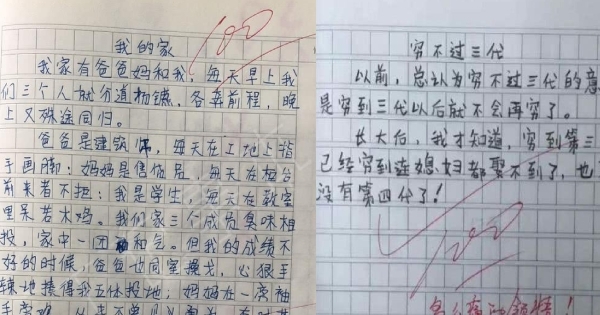 我的家
100
我家有爸爸妈和我，每天早上我
们三个人就分道杨镳，各奔前程，晚
上又殊途同归。
爸爸是建筑师，每天在工地上指
手画脚；妈妈是售货员，每天在柜台
前来者不拒；我是学生，每天在教室
里呆若木鸡。我们家三个成员臭味相
投，家中一团和气。但我的成绩不
好的时候，爸爸也同室操戈，心狠手
辣地揍得我五体投地，妈妈在一旁袖
穷不过三代
以前，总认为穷不过三代的意
是穷到三代以后就不会再穷了。
长大后，我才知道，穷到第三
已经穷到连媳妇都娶不到了，也
没有第四代了！
100